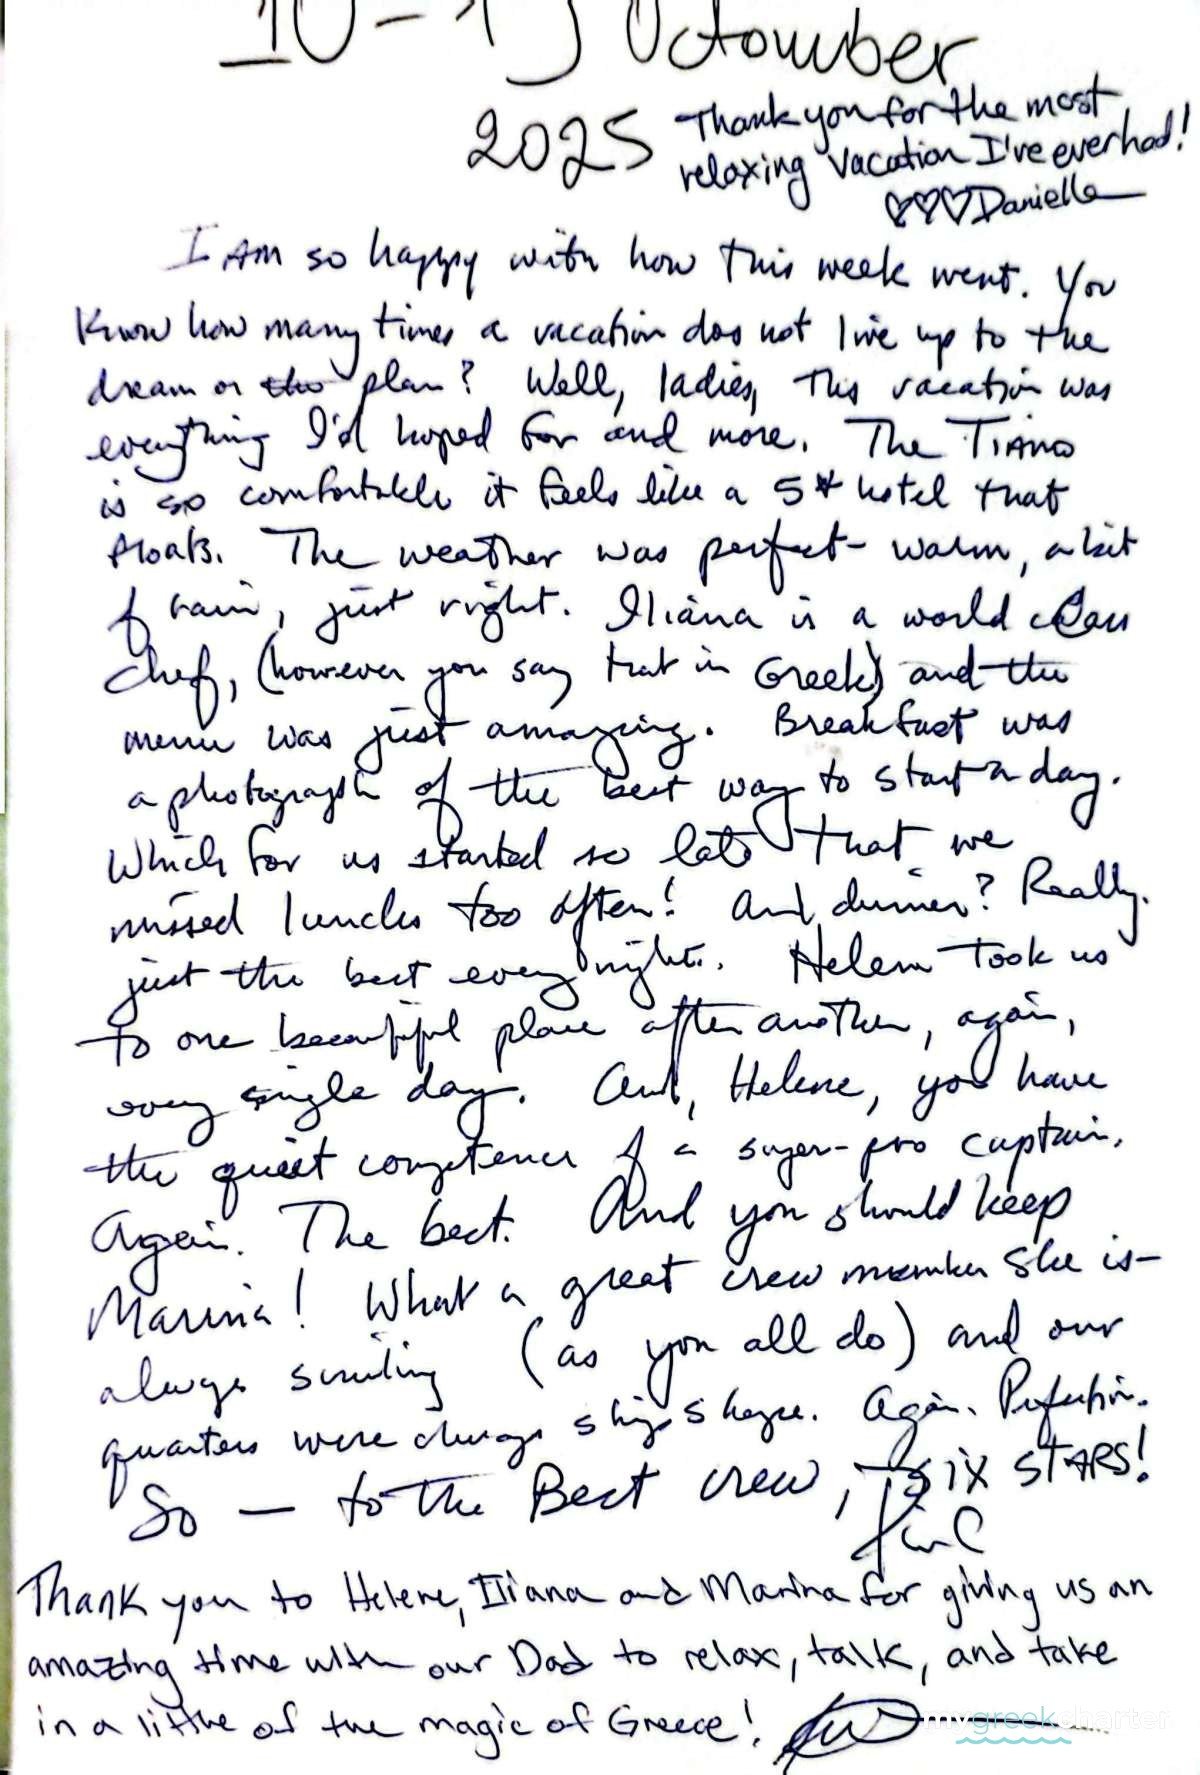 October
2025
Thank you for the most
relaxing vacation I've ever had!
♡♡♡ Danielle
I AM so happy with how this week went. You
know how many times a vacation does not live up to the
dream or the plan? Well, ladies, this vacation was
everything I'd hoped for and more. The TIANO
is so comfortable it feels like a 5* hotel that
floats. The weather was perfect - warm, a bit
of rain, just right. Iliana is a world class
chef, (however you say that in Greek) and the
menu was just amazing. Breakfast was
a photograph of the best way to start a day.
Which for us started so late that we
missed lunches too often! And dinner? Really.
just the best every night. Helene took us
to one beautiful place after another, again,
every single day. And, Helene, you have
the quiet competence of a super-pro captain.
Again. The best. And you should keep
Marina! What a great crew member she is -
always smiling (as you all do) and our
quarters were always shipshape. Again. Perfection.
So — to the Best crew, SIX STARS!
Thank you to Helene, Iliana and Marina for giving us an
amazing time with our Dad to relax, talk, and take
in a little of the magic of Greece!
mygreekcharter